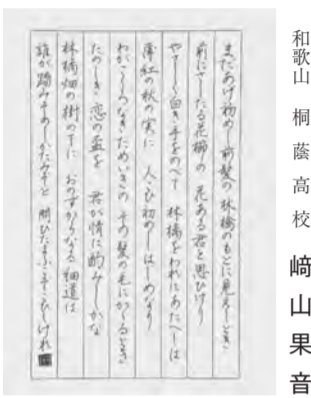 和歌山 桐蔭高校 﨑山果音
まだあげ初めし前髪の 林檎のもとに見えしとき
前にさしたる花櫛の 花ある君と思ひけり
やさしく白き手をのべて 林檎をわれにあたへしは
薄紅の秋の実に 人こひ初めしはじめなり
わがこゝろなきためいきの その髪の毛にかゝるとき
たのしき恋の盃を 君が情に酌みしかな
林檎畑の樹の下に おのづからなる細道は
誰が踏みそめしかたみぞと 問ひたまふこそこひしけれ